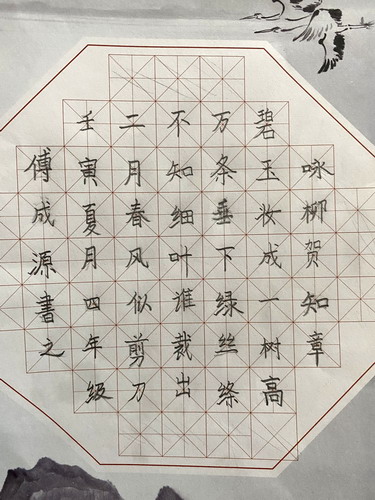 咏柳贺知章
碧玉妆成一树高
万条垂下绿丝绦
不知细叶谁裁出
二月春风似剪刀
壬寅夏月四年级
傅成源書之